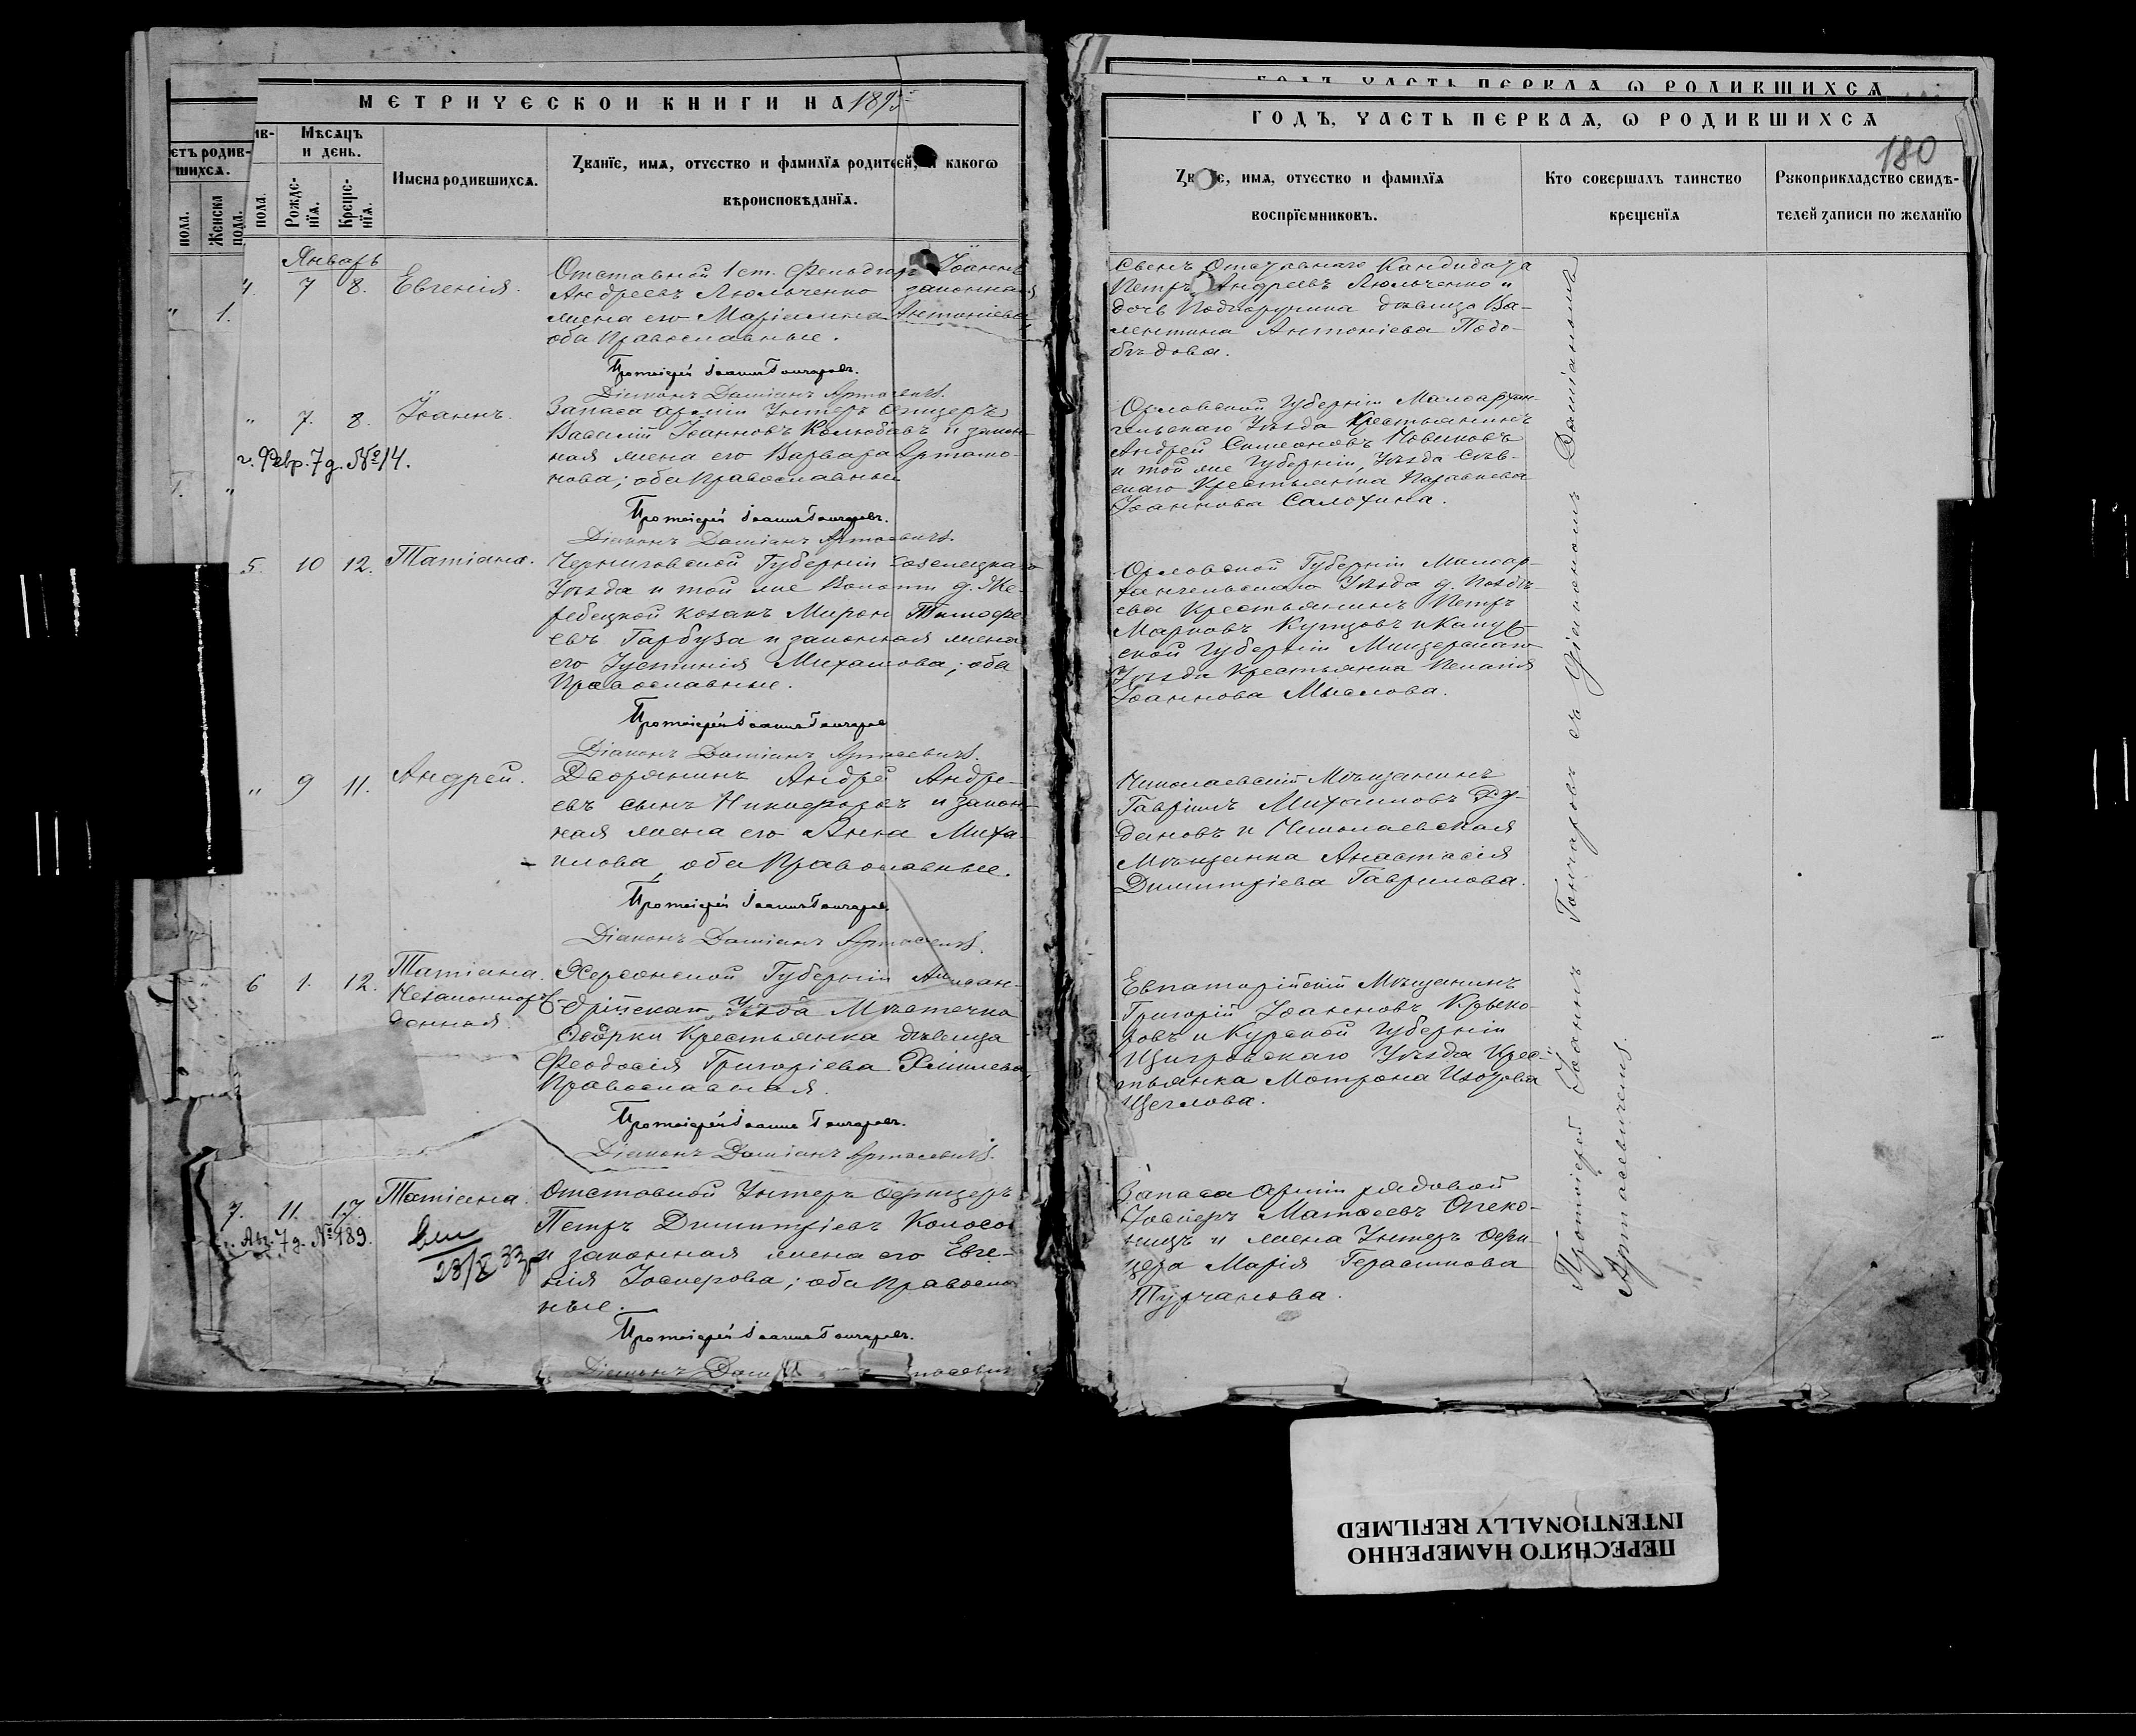 МЕТРИЧЕСКОЙ КНИГИ НА 189
етъ родив-
шихся.
ив-
Мѣсяцъ
и день.
Имена родившихся.
Званїе, имя, отчество и фамилїя родителей, и какогѡ
вѣроисповѣданїя.
пола.
Женска
пола.
пола.
Рожде-
нїя.
Креще-
нїя.
Январь
1.
4. 7 8. Евгенія.
Отставной 1 ст. Фельдшеръ Іоаннъ
Андреевъ Люльченко законная
жена его Маріамна Антоніева,
оба Православные.
Протоіерей Іоаннъ Гончаровъ.
Діаконъ Даміанъ Артасевичъ.
" 7. 8. Іоаннъ.
г. Февр. 7 д. № 14.
Запаса арміи Унтеръ Офицеръ
Василій Іоанновъ Колюбаевъ и закон-
ная жена его Варвара Артамо-
нова; оба Православные
Протоіерей Іоаннъ Гончаровъ.
Діаконъ Даміанъ Артасевичъ.
5. 10 12. Татіана.
Черниговской Губерніи Козелецкаго
Уѣзда и той же Волости д. Же-
ребецкой козакъ Миронъ Тимофе-
евъ Гарбуза и законная жена
его Іустинія Михаилова; оба
Православные.
Протоіерей Іоаннъ Гончаров
Діаконъ Даміанъ Артасевичъ.
" 9 11. Андрей.
Дворянинъ Андрей Андре-
евъ сынъ Никифоровъ и закон-
ная жена его Анна Миха-
илова, оба Православные.
Протоіерей Іоаннъ Гончаров.
Діаконъ Даміанъ Артасевичъ.
6 1. 12. Татіана.
Незаконнорож-
денная.
Херсонской Губерніи Алексан-
дрійскаго Уѣзда Мѣстечка
крестьянка дѣвица
Феодосія Григоріева
Православная.
Протоіерей Іоаннъ Гончаровъ.
Діаконъ Даміанъ Артасевичъ.
7. 11. 17. Татіана.
Авг. 7 д. № 489.
Отставной Унтеръ Офицеръ
Петръ Димитріевъ Колосов
и законная жена его Евге-
нія Іосифова; оба Правосла
ные.
Протоіерей Іоаннъ Гончаровъ.
Діаконъ Дам
ГОДЪ, ЧАСТЬ ПЕРВАЯ, Ѡ РОДИВШИХСЯ
ГОДЪ, ЧАСТЬ ПЕРВАЯ, Ѡ РОДИВШИХСЯ
180
Званїе, имя, отчество и фамилїя
воспрїемниковъ.
Кто совершалъ таинство
крещенїя
Рукоприкладство свидѣ-
телей записи по желанїю
Сынъ Отставнаго Кандидата
Петръ Андреевъ Люльченко и
дочь Подпоручика дѣвица Ва-
лентина Антоніева Подо-
бѣдова.
Орловской Губерніи Малоархан-
гельскаго Уѣзда Крестьянинъ
Андрей Симеоновъ Новиковъ
и той же Губерніи, Уѣзда Сѣв-
скаго Крестьянка Параскева
Іоаннова Салохина.
Орловской Губерніи Малоар-
хангельскаго Уѣзда д.
Крестьянинъ Петръ
Марковъ Купцовъ и Калуж-
ской Губерніи Мещерскаго
Уѣзда Крестьянка Пелагія
Іоаннова Мыслова.
Николаевскій Мѣщанинъ
Гавріилъ Михаиловъ Ру-
дановъ и Николаевская
Мѣщанка Анастасія
Димитріева Гаврилова.
Евпаторійскій Мѣщанинъ
Григорій Іоанновъ
и Курской Губерніи
Щигровскаго Уѣзда Крес-
тьянка Матрона
Щеглова.
Запаса Арміи рядовой
Іосифъ Матѳеевъ
и жена Унтеръ Офи-
цера Марія Герасимова
Турчанова.
Протоіерей Іоаннъ Гончаровъ съ Діакономъ Даміаномъ
Артасевичемъ.
ПЕРЕСНЯТО НАМЕРЕННО
INTENTIONALLY REFILMED